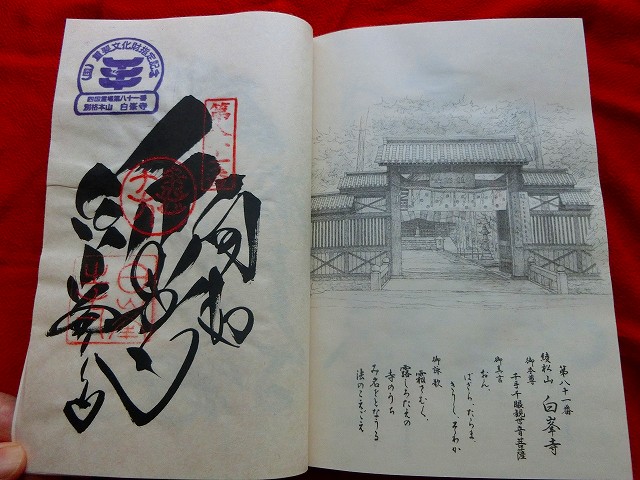 (国)重要文化財指定記念
四国霊場第八十一番
別格本山 白峯寺
第八十一番
綾松山 白峯寺
御本尊 千手千眼観世音菩薩
御真言
おん、
ばさら、たらま、
きりく、そわか
御詠歌
霜さむく、
露しろたえの
寺のうち
み名をとなうる
法のこえこえ